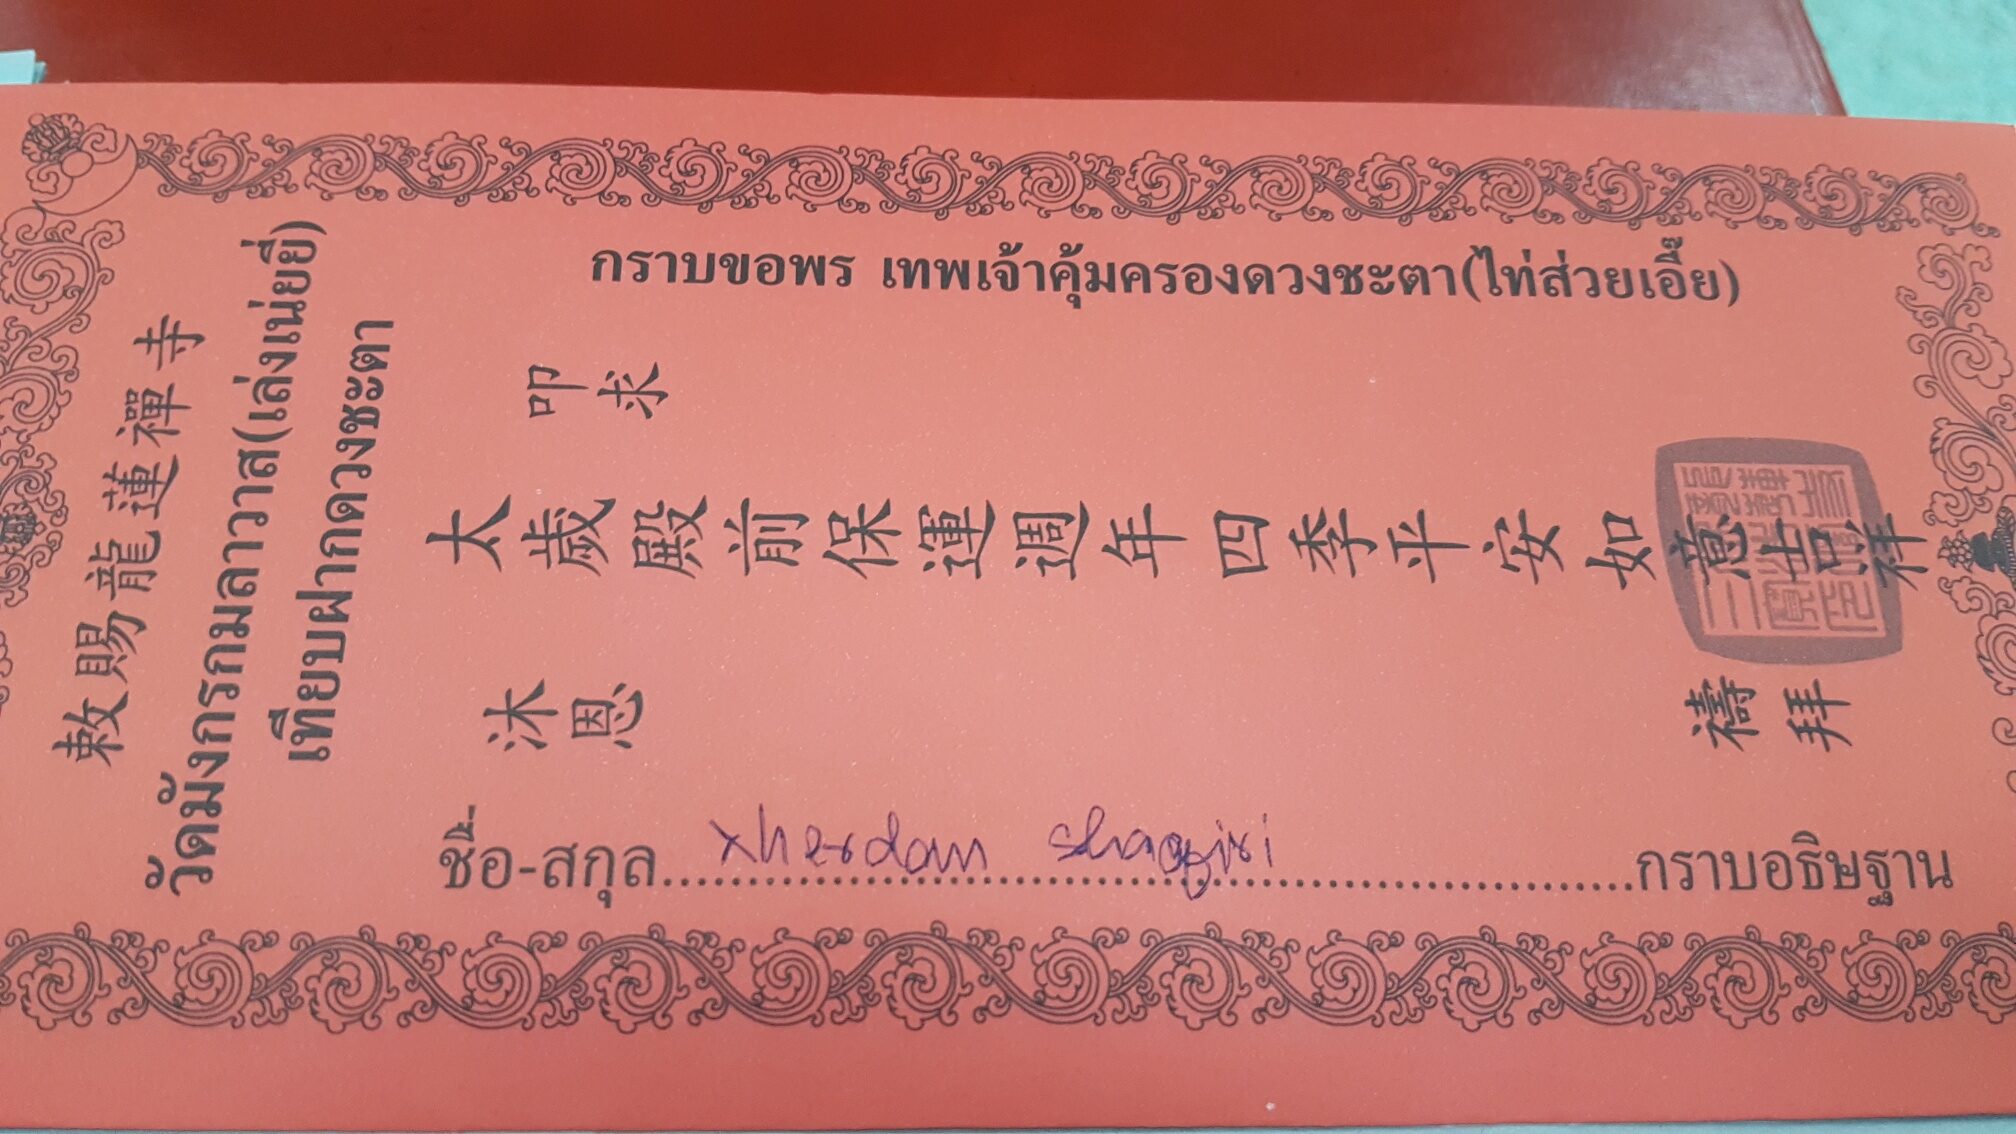 敕賜龍蓮禪寺
วัดมังกรกมลาวาส(เล่งเน่ยยี่)
เทียบฝากดวงชะตา
กราบขอพร เทพเจ้าคุ้มครองดวงชะตา(ไท่ส่วยเอี๊ย)
叩求
太歲殿前保運週年四季平安如意吉祥
沐恩
禱拜
ชื่อ-สกุล xherdan shaqiri กราบอธิษฐาน